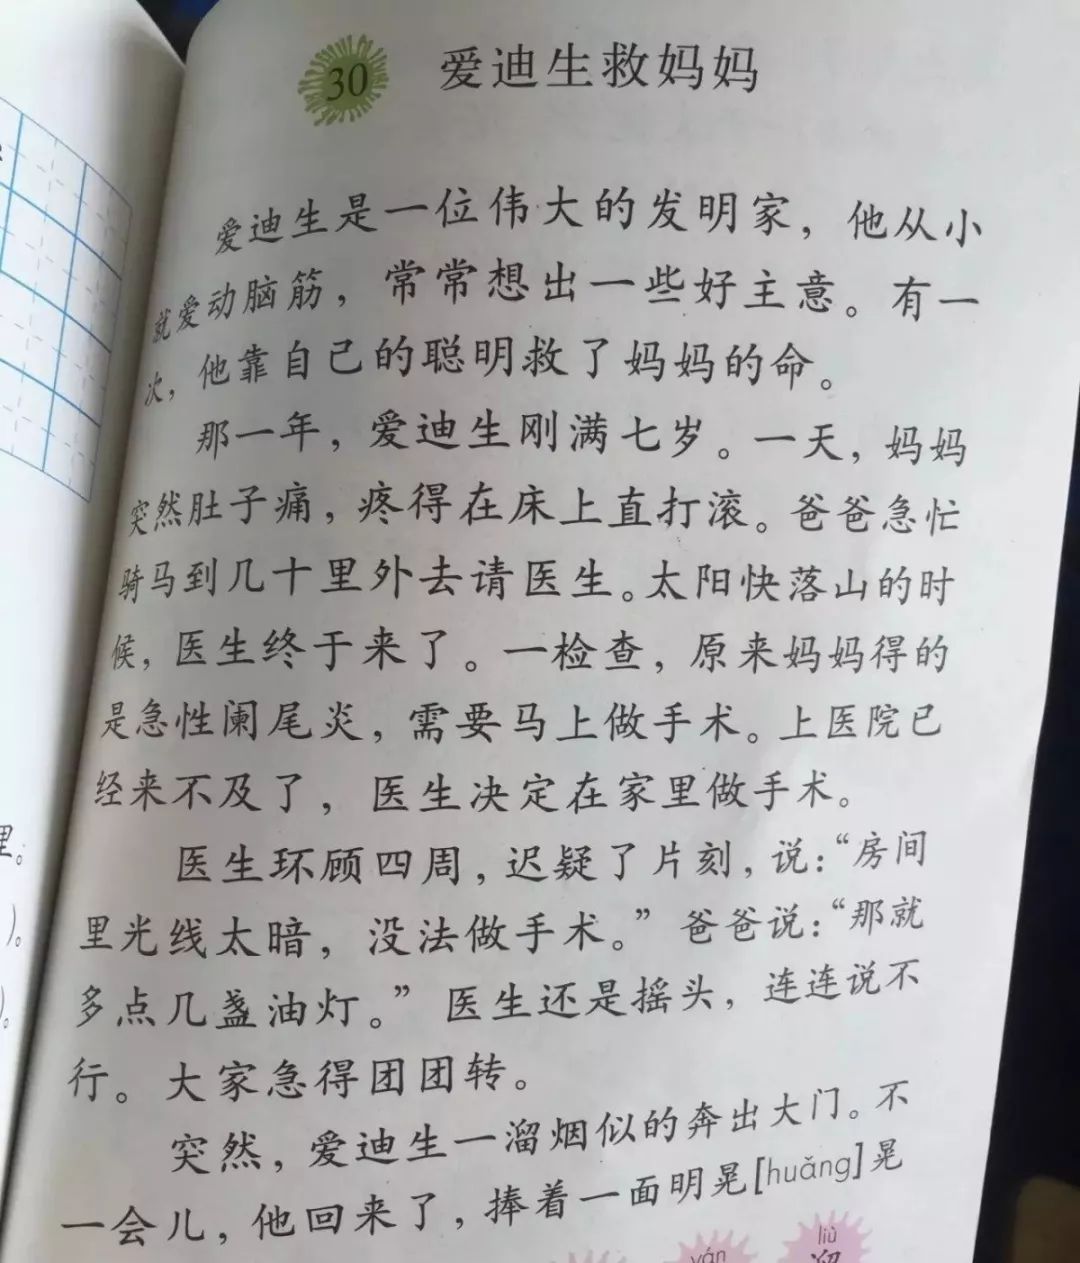 30 爱迪生救妈妈
爱迪生是一位伟大的发明家，他从小
就爱动脑筋，常常想出一些好主意。有一
次，他靠自己的聪明救了妈妈的命。
那一年，爱迪生刚满七岁。一天，妈妈
突然肚子痛，疼得在床上直打滚。爸爸急忙
骑马到几十里外去请医生。太阳快落山的时
候，医生终于来了。一检查，原来妈妈得的
是急性阑尾炎，需要马上做手术。上医院已
经来不及了，医生决定在家里做手术。
医生环顾四周，迟疑了片刻，说：“房间
里光线太暗，没法做手术。”爸爸说：“那就
多点几盏油灯。”医生还是摇头，连连说不
行。大家急得团团转。
突然，爱迪生一溜烟似的奔出大门。不
一会儿，他回来了，捧着一面明晃[huǎng]晃
yán liù
溜
里。
)。
)。